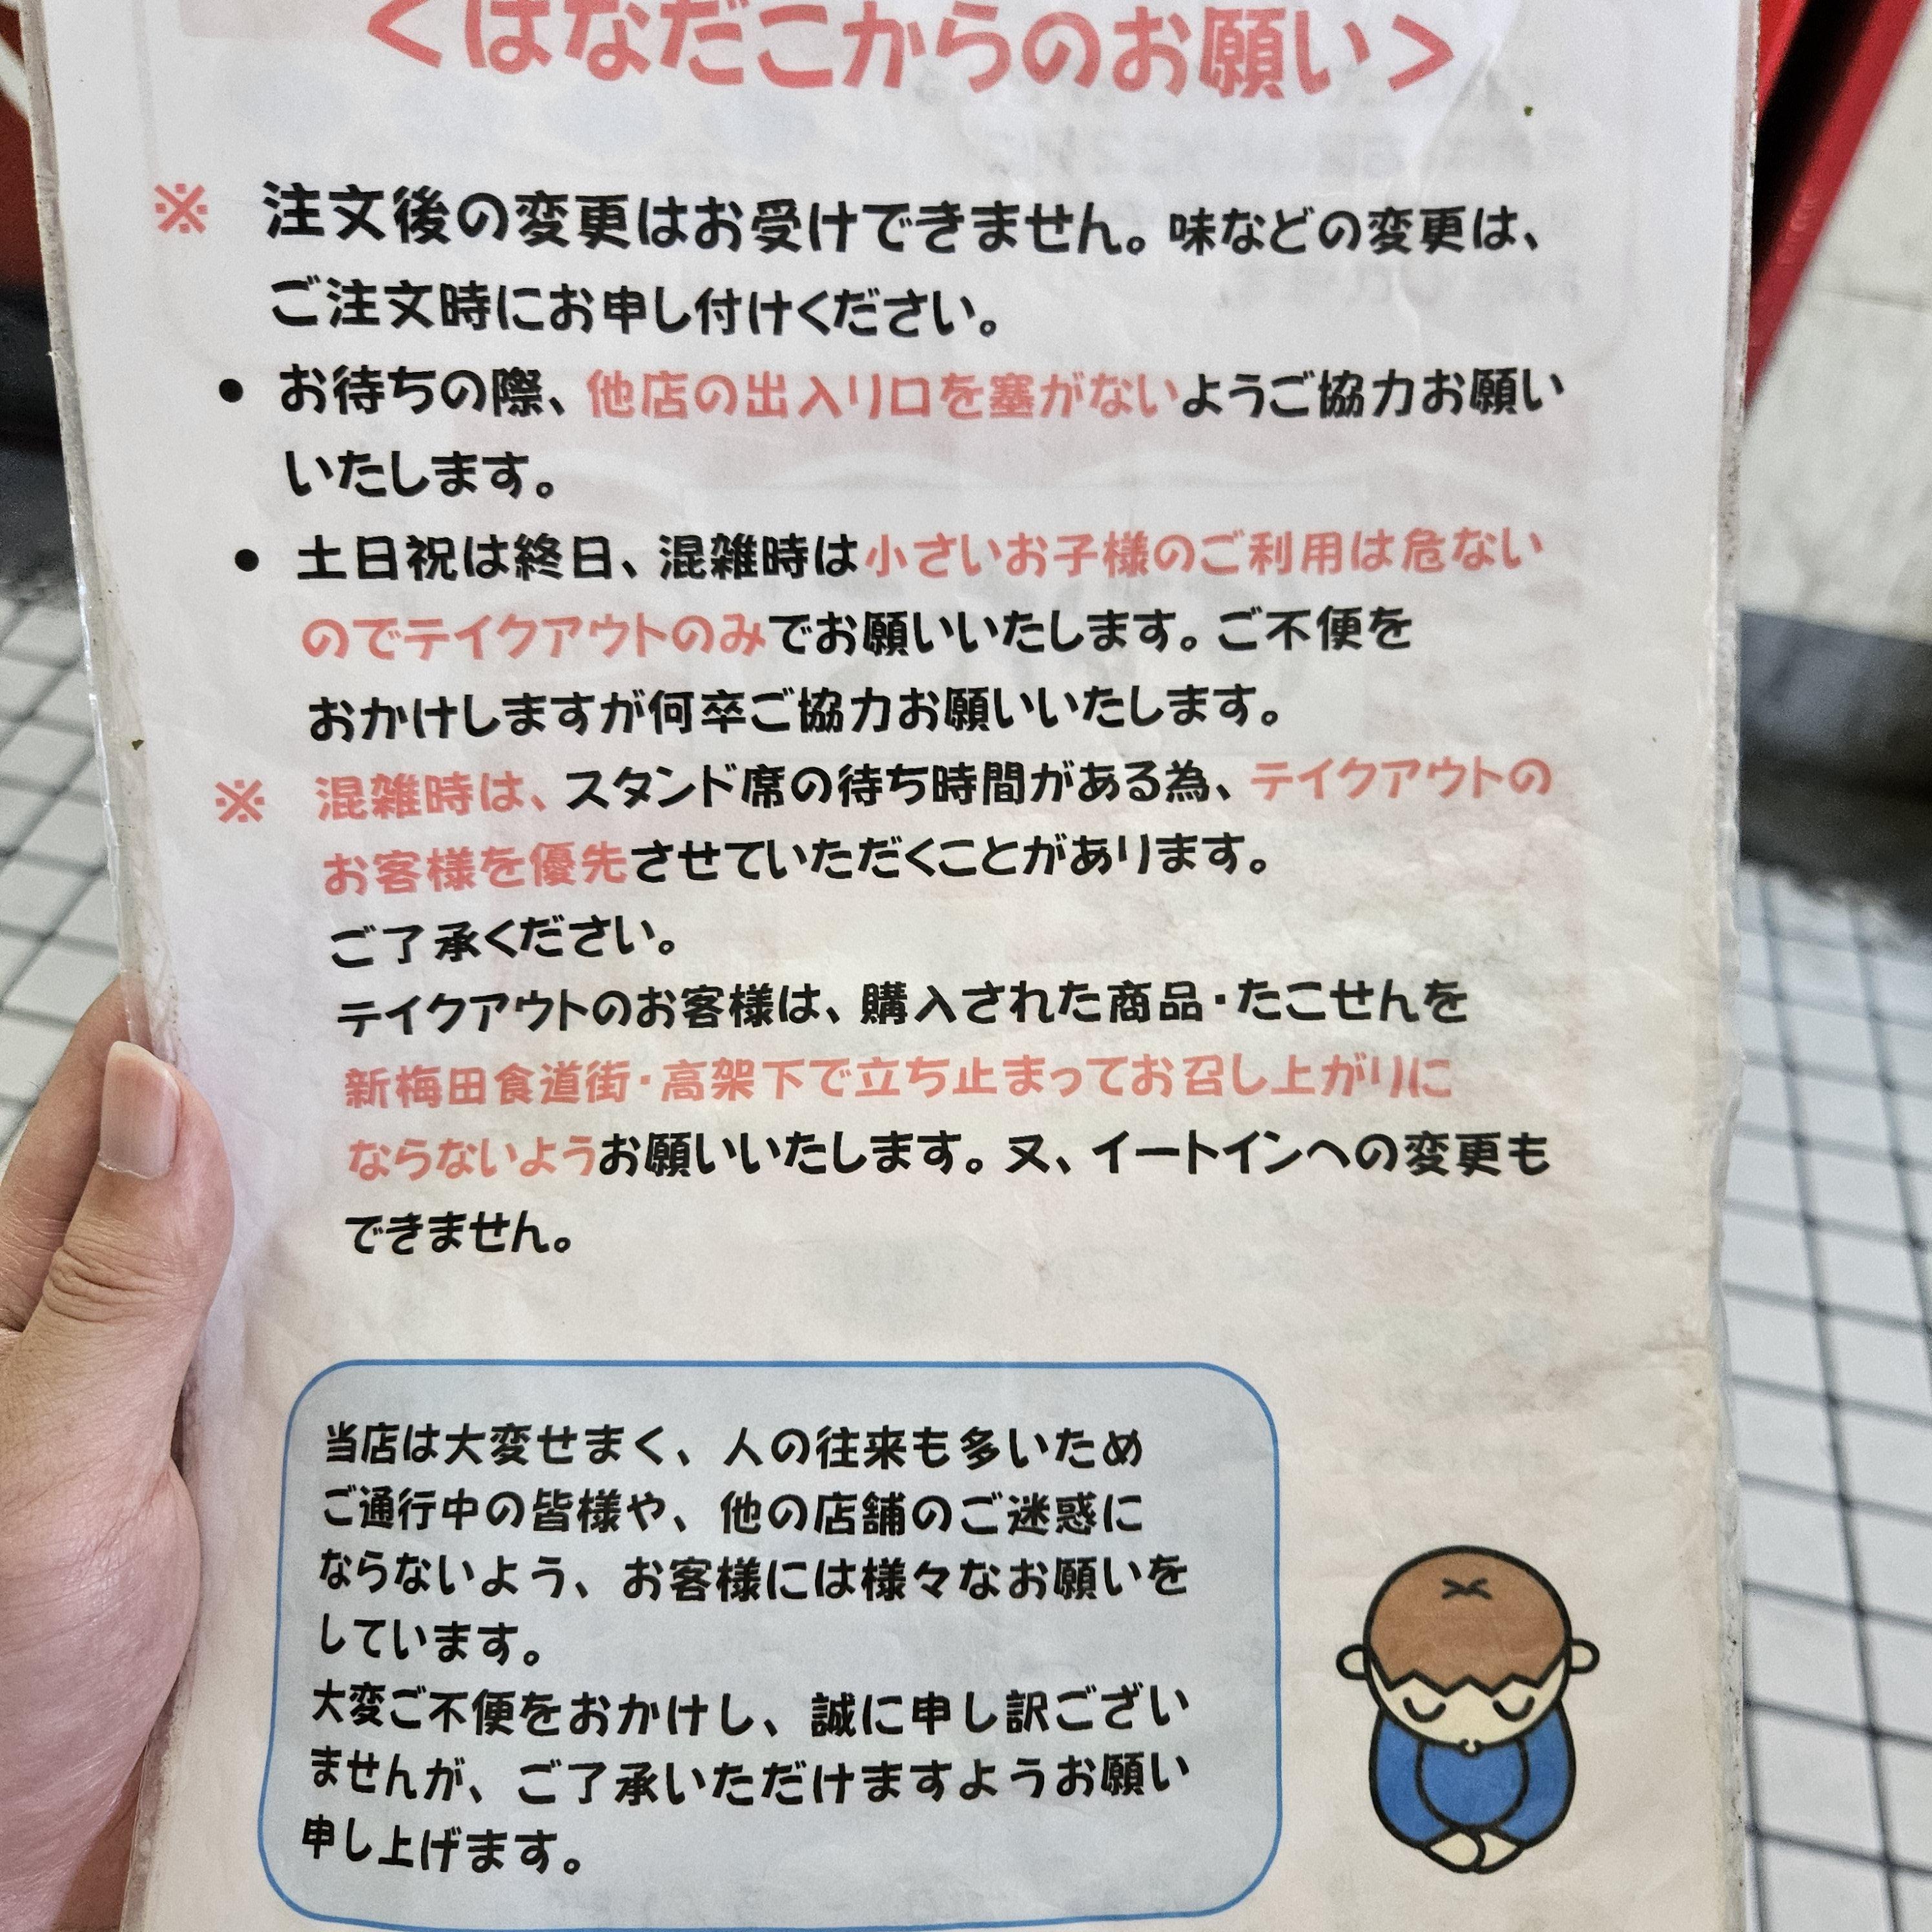 ＜はなだこからのお願い＞
※ 注文後の変更はお受けできません。味などの変更は、
ご注文時にお申し付けください。
● お待ちの際、他店の出入り口を塞がないようご協力お願い
いたします。
● 土日祝は終日、混雑時は小さいお子様のご利用は危ない
のでテイクアウトのみでお願いいたします。ご不便を
おかけしますが何卒ご協力お願いいたします。
※ 混雑時は、スタンド席の待ち時間がある為、テイクアウトの
お客様を優先させていただくことがあります。
ご了承ください。
テイクアウトのお客様は、購入された商品・たこせんを
新梅田食道街・高架下で立ち止まってお召し上がりに
ならないようお願いいたします。又、イートインへの変更も
できません。
当店は大変せまく、人の往来も多いため
ご通行中の皆様や、他の店舗のご迷惑に
ならないよう、お客様には様々なお願いを
しています。
大変ご不便をおかけし、誠に申し訳ござい
ませんが、ご了承いただけますようお願い
申し上げます。